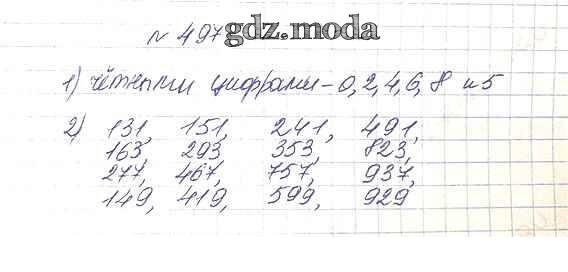 № 497
gdz.moda
1) чётными цифрами – 0, 2, 4, 6, 8 и 5
2) 131, 151, 241, 491,
163, 293, 353, 823,
277, 467, 757, 937,
149, 419, 599, 929